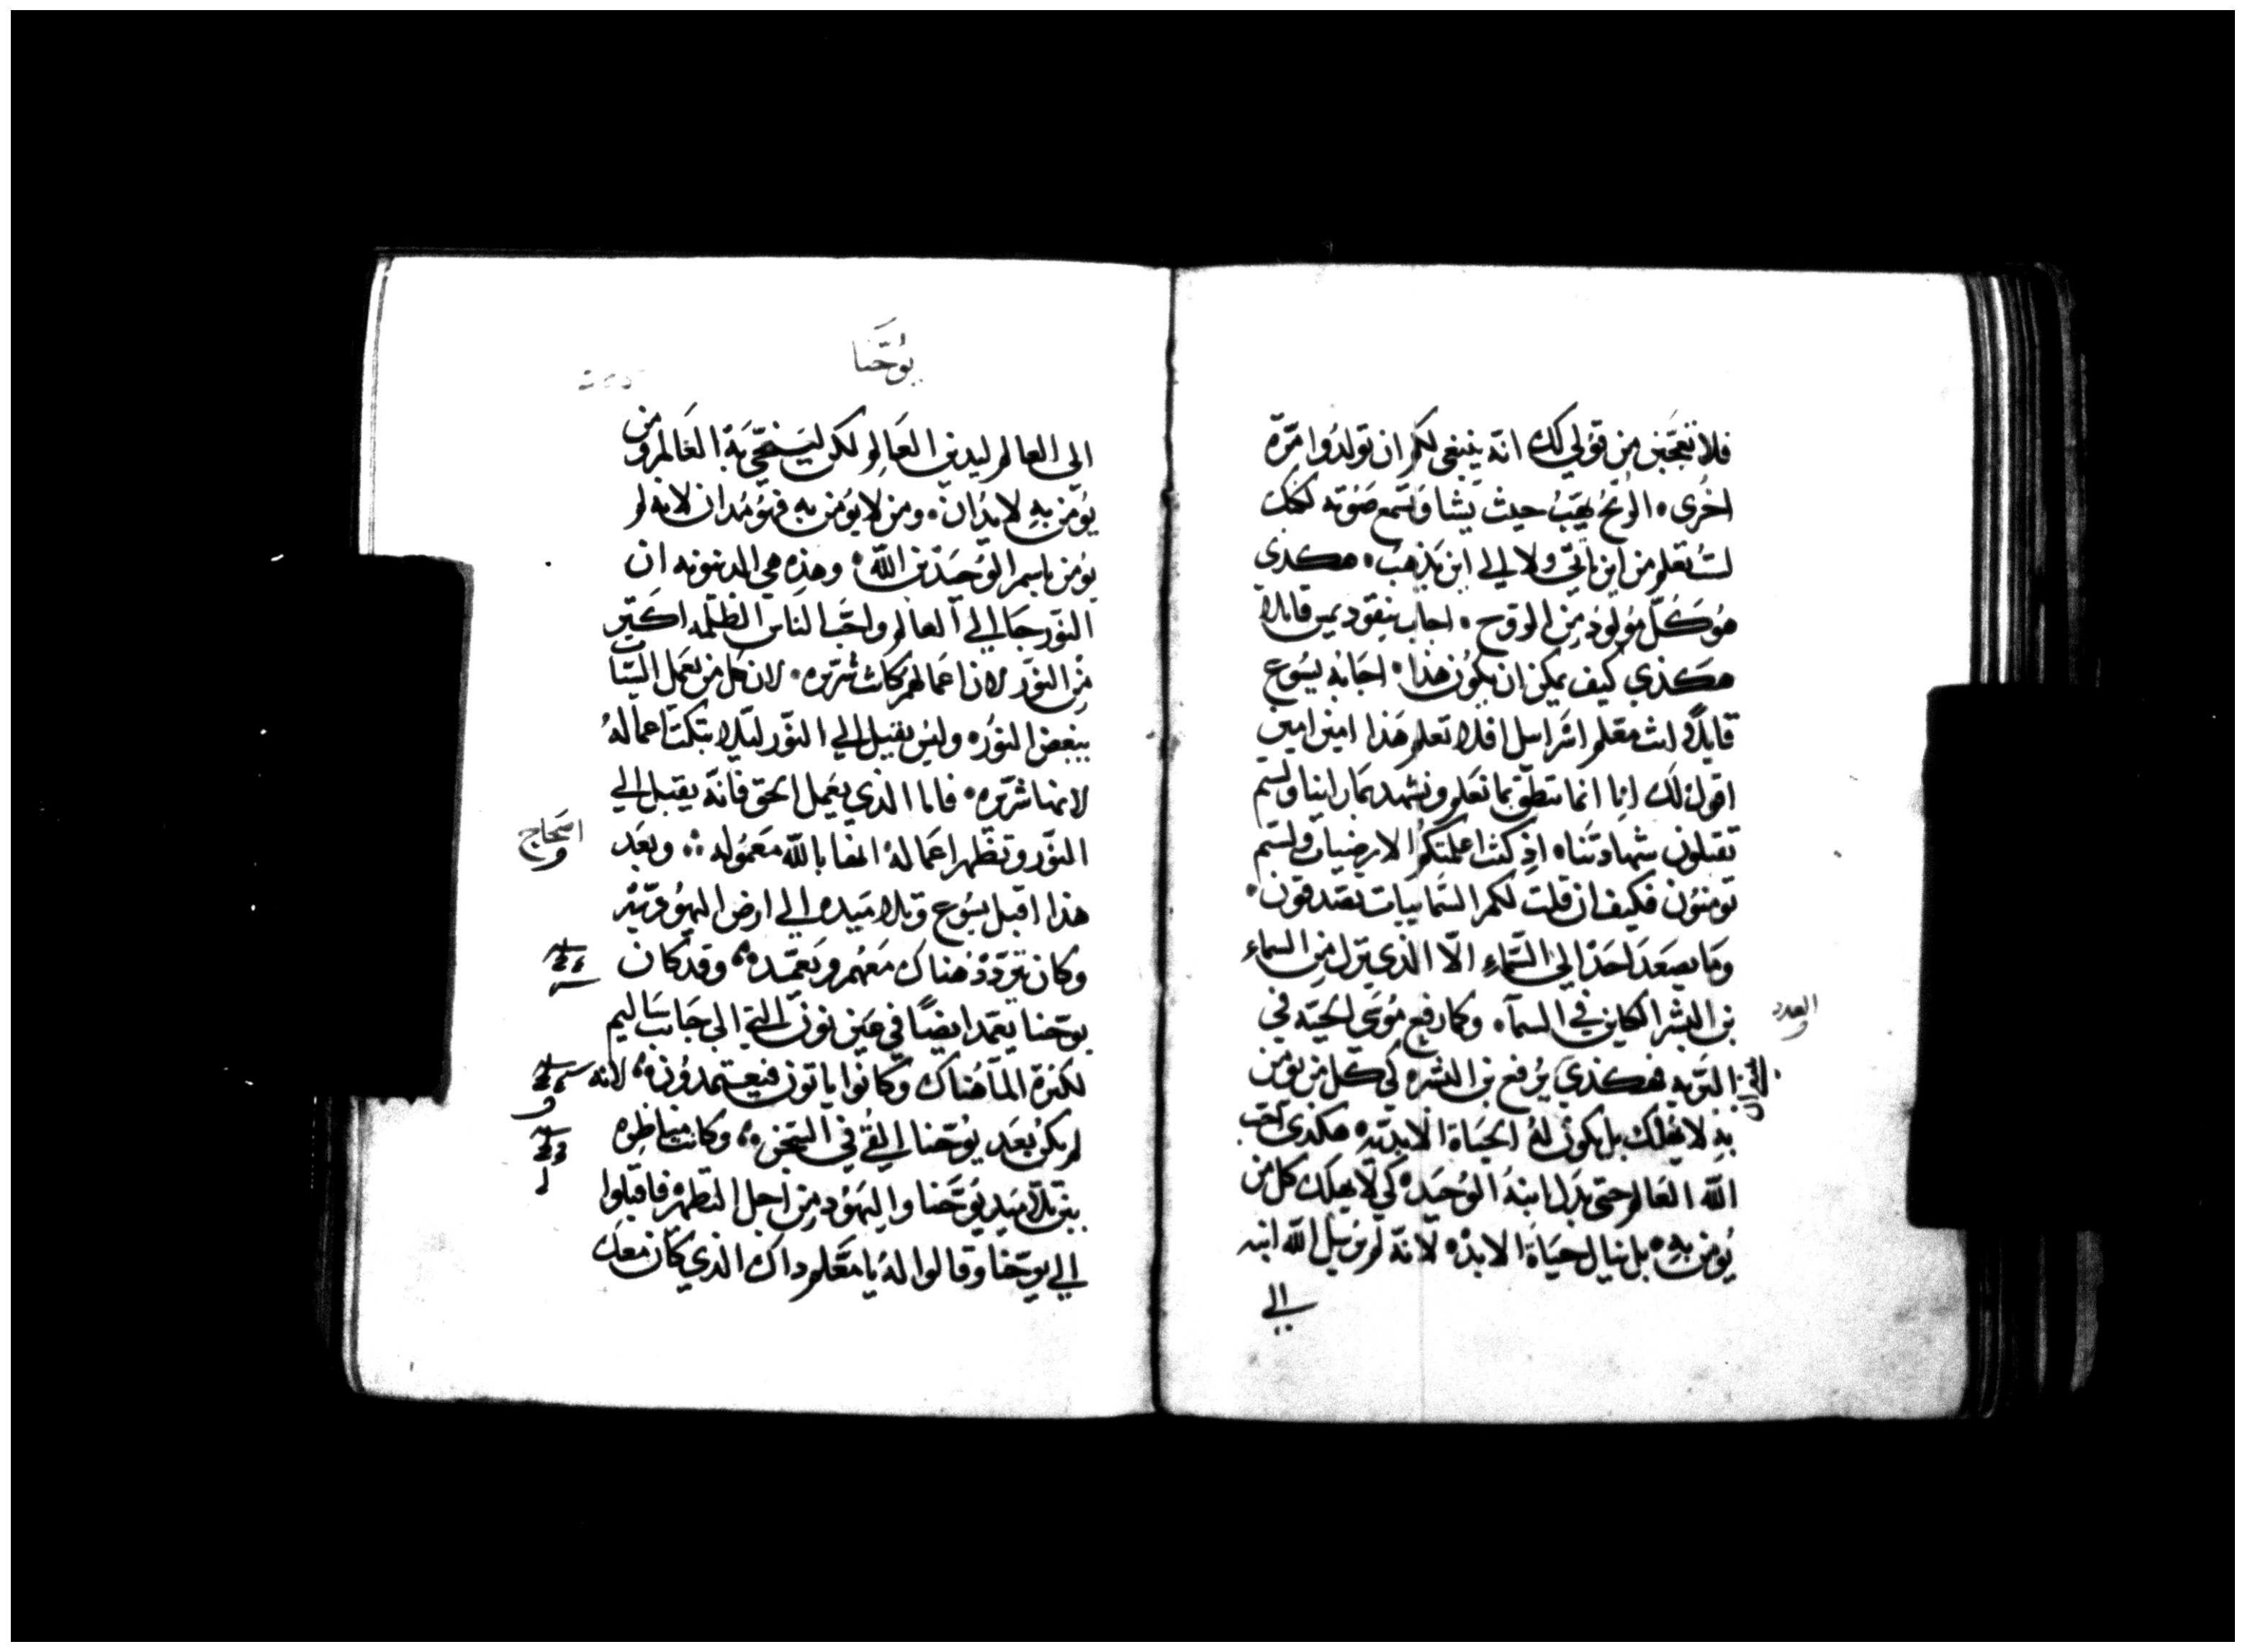 فلا تتعجبن من قولي لك انه ينبغي لكم ان تولدوا مرّة
اخرى • الريح يهب حيث يشا وتسمع صوته لكنك
لست تعلم من اين ياتي ولا الي اين يذهب • هكذى
هو كل مولود من الروح • اجاب نيقوديمس قايلا
هكذي كيف يمكن ان يكون هذا • اجابه يسوع
قايلاً انت معلم اسرايل افلا تعلم هذا امين امين
اقول لك اننا انما ننطق بما نعلم ونشهد بما راينا ولستم
تقبلون شهادتنا • اذ كنت اعلمتكم الارضيات ولستم
تومنون فكيف ان قلت لكم السماييات تصدقون •
وما يصعد احد الي السّماء الّا الذي نزل من السماء
بن البشر الكاين في السمآ • وكما رفع موسي الحيّه في
العدد
البريه هكذي يرفع بن البشر • كي كل من يومن
به لا يهلك بل يكون له الحياة الابديّه • هكذى احب
الله العالم حتى بذل ابنه الوحيد • كي لا يهلك كل من
يومن به • بل ينال حياة الابد • لانه لم يرسل الله ابنه
الي
يوحنا
الى العالم ليدين العالم لكن لينجّي به العالم ومن
يومن به لا يدان • ومن لا يومن به فهو مدان لانه لم
يومن باسم الوحيد بن الله • وهذه هي الدينونه ان
النور جا الي العالم واحب الناس الظلمه اكثر
من النور لان اعمالهم كانت شريره • لان كل من يعمل السيّات
يبغض النور • وليس يقبل الي النور ليلا تبكت اعماله
لانها شريره • فاما الذي يعمل الحق فانه يقبل الي
النور وتظهر اعماله انها بالله معموله • وبعد
اصحاح
هذا اقبل يسوع وتلاميذه الي ارض اليهوديّه
وكان يتردد هناك معهم ويعمّد • وقد كان
يوحنا يعمد ايضًا في عين نون التي الى جانب ساليم
لكثرة المآ هناك وكانوا ياتون فيعتمدون • لانه
لم يكن بعد يوحنا القي في السجن • وكانت مناظره
بين تلاميد يوحنا واليهود من اجل التطهر فاقبلوا
الي يوحنا وقالوا له يا معلم داك الذي كان معك